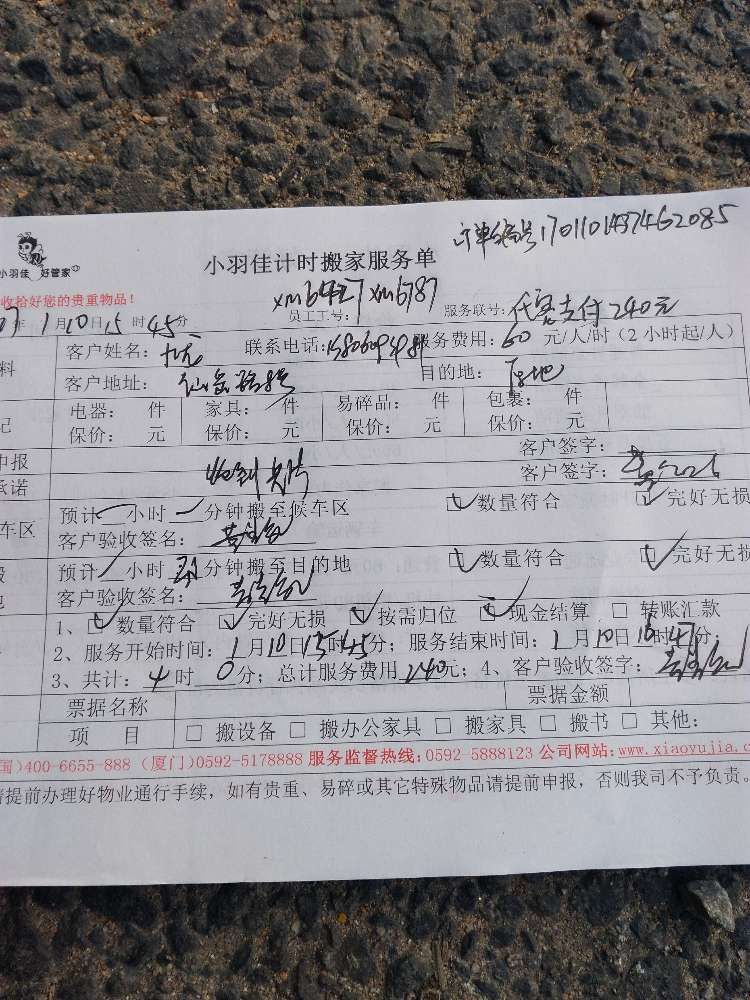 订单编号1701101437462085
小羽佳 好管家
小羽佳计时搬家服务单
收拾好您的贵重物品！
员工工号： xm6427 xm6787 服务联号： 代客支付240元
年 1月10日15时45分
客户姓名： 联系电话： 服务费用：60元/人/时（2小时起/人）
客户地址： 目的地：
电器： 件 家具： 件 易碎品： 件 包裹： 件
保价： 元 保价： 元 保价： 元 保价： 元
申报 客户签字：
承诺 客户签字：
预计 小时 分钟搬至候车区 数量符合 完好无损
车区 客户验收签名：
预计 小时 分钟搬至目的地 数量符合 完好无损
客户验收签名：
1、数量符合 完好无损 按需归位 现金结算 □ 转账汇款
2、服务开始时间：1月10日15时45分；服务结束时间：1月10日16时47分；
3、共计：4时0分；总计服务费用240元；4、客户验收签字：
票据名称 票据金额
项 目 □ 搬设备 □ 搬办公家具 □ 搬家具 □ 搬书 □ 其他：
国)400-6655-888 (厦门)0592-5178888 服务监督热线:0592-5888123 公司网站:www.xiaoyujia.c
请提前办理好物业通行手续，如有贵重、易碎或其它特殊物品请提前申报，否则我司不予负责。